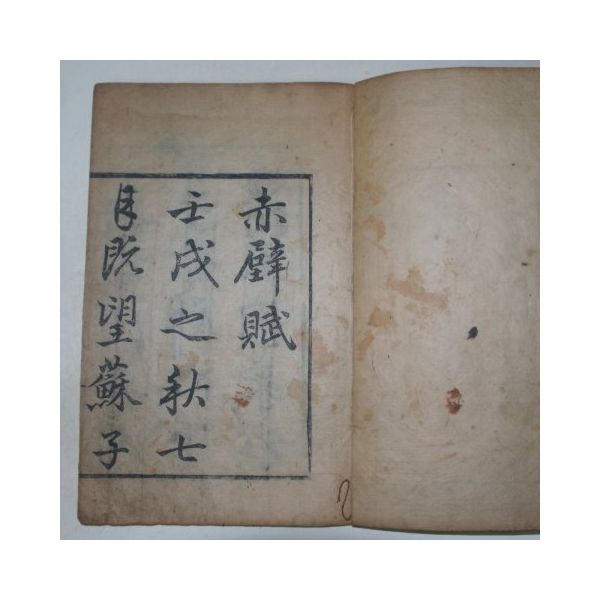 赤壁賦
壬戌之秋七
月既望蘇子